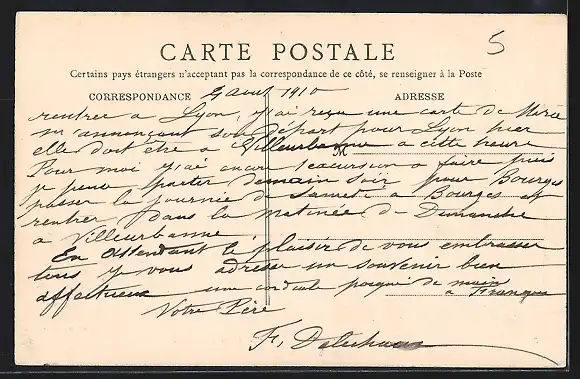 5
CARTE POSTALE
Certains pays étrangers n'acceptant pas la correspondance de ce côté, se renseigner à la Poste
CORRESPONDANCE
août 1910
ADRESSE
rentrée a Lyon, j'ai reçu une carte de
m'annonçant son départ pour Lyon hier
elle doit être a Villeurbanne a cette heure
M
Pour moi j'ai encore 1 excursion a faire puis
je pense partir demain soir pour Bourges
passer la journée de Samedi a Bourges et
rentrer dans la matinée de Dimanche
a Villeurbanne
En attendant le plaisir de vous embrasser
tous j'y vous adresse un souvenir bien
affectueux une cordiale poignée de main
a François
Votre Père
F.